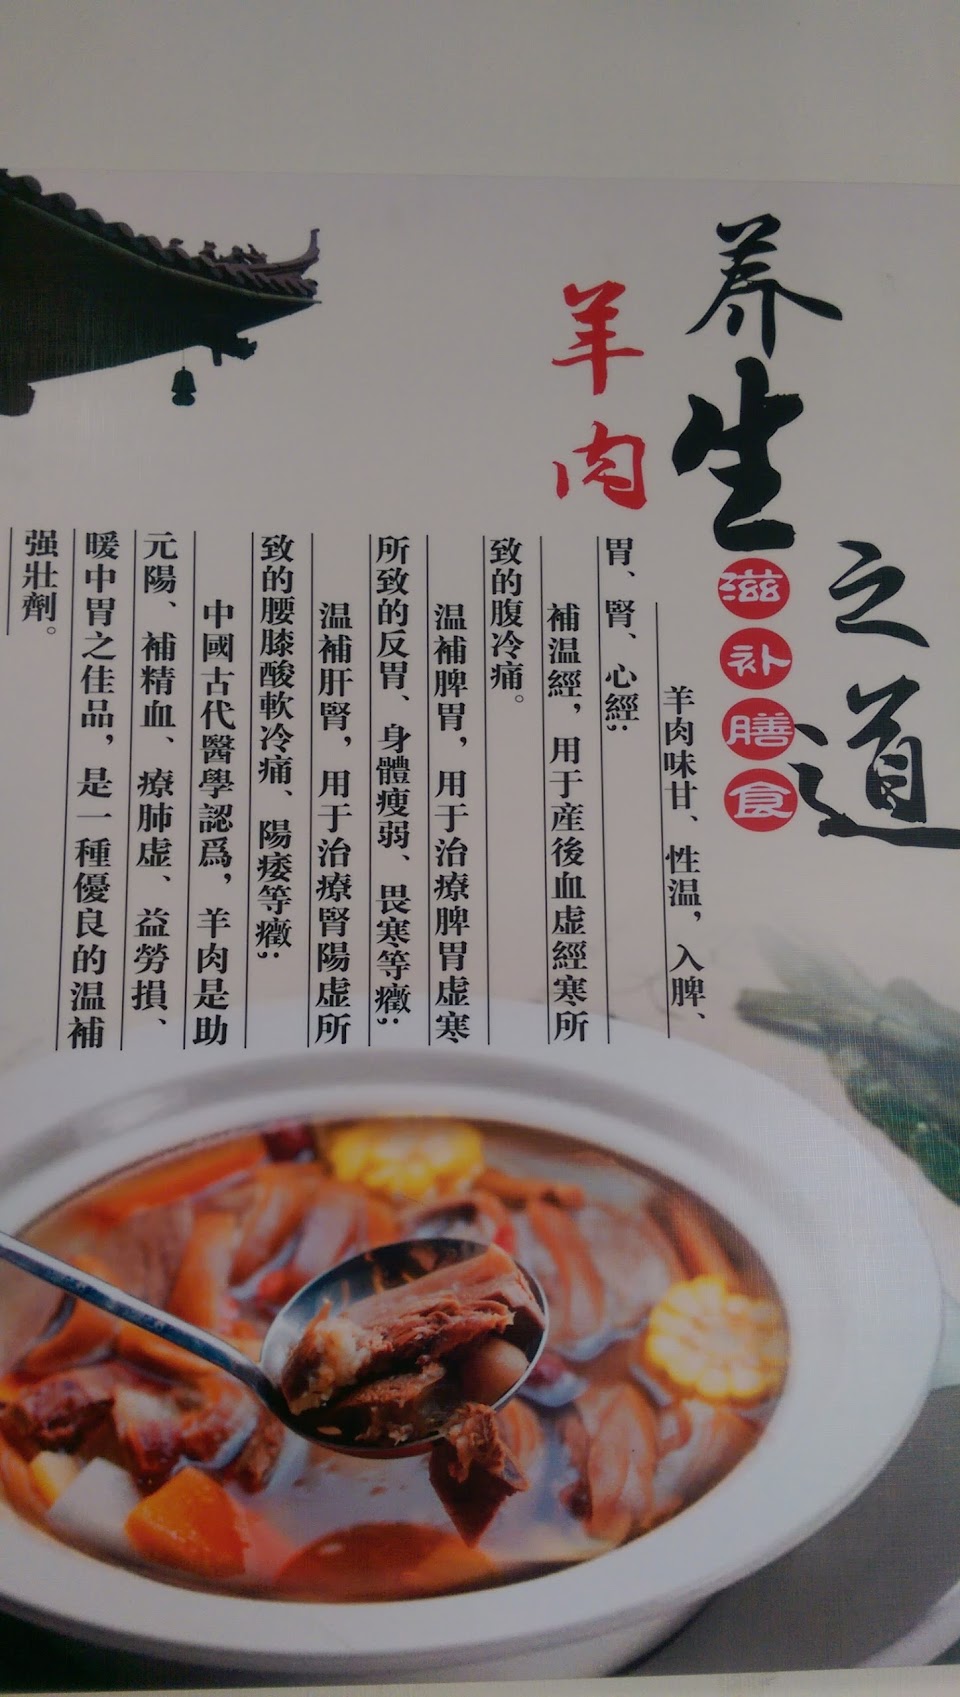 养生之道
滋补膳食
羊肉
羊肉味甘、性温，入脾、
胃、腎、心經;
補温經，用于産後血虚經寒所
致的腹冷痛。
温補脾胃，用于治療脾胃虚寒
所致的反胃、身體瘦弱、畏寒等癥;
温補肝腎，用于治療腎陽虚所
致的腰膝酸軟冷痛、陽痿等癥;
中國古代醫學認爲，羊肉是助
元陽、補精血、療肺虚、益勞損、
暖中胃之佳品，是一種優良的温補
强壯劑。